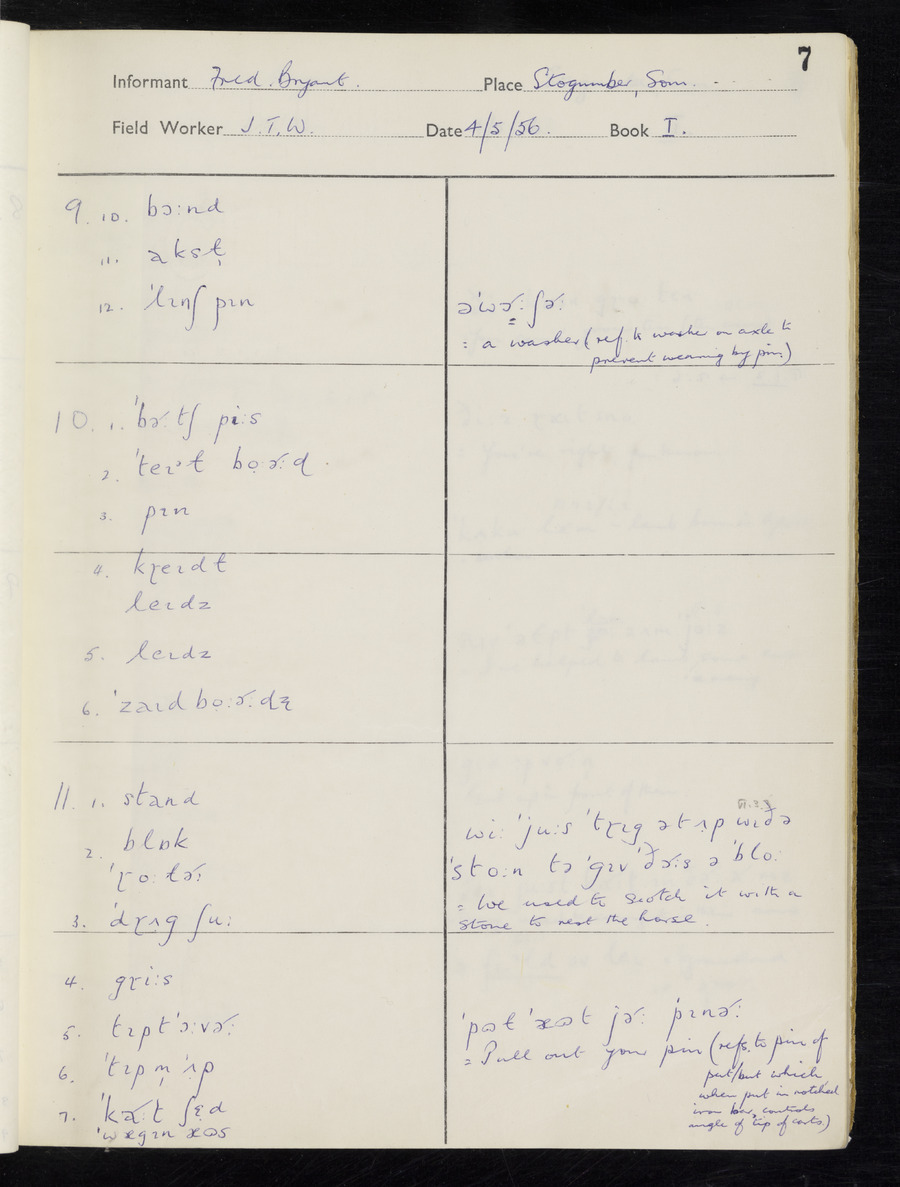 7
Informant Fred. Bryant. Place Stogumber, Som.
Field Worker J.T.W. Date 4/5/56. Book I.
9. 10. bɔːnd
11. akst̩
12. ˈlɪnʃ pɪn
= a washer (ref. to washer on axle to
prevent wearing by pin.)
10. 1. ˈbɚːtʃ piːs
2.
3. pɪn
4. kɽeɪdt
leɪdz
5. leɪdz
6.
11. 1. stand
2. blɒk
3. ˈdɽʌg ʃuː
wiː ˈjuːs ˈtɽɪg ət ʌp wɪð ə
ˈstoːn tə ˈgɪv ˈðɚːz ə ˈbloː
= We used to scotch it with a
stone to rest the horse.
4. gɽiːs
5. tɪpt ˈɔːvɚː
6. ˈtɪp m̩ ˈʌp
7.
ˈwægɪn æʊs
= Pull out your pin (refs. to pin of
putt/butt which
when put in notched
iron bar, controls
angle of tip of carts)